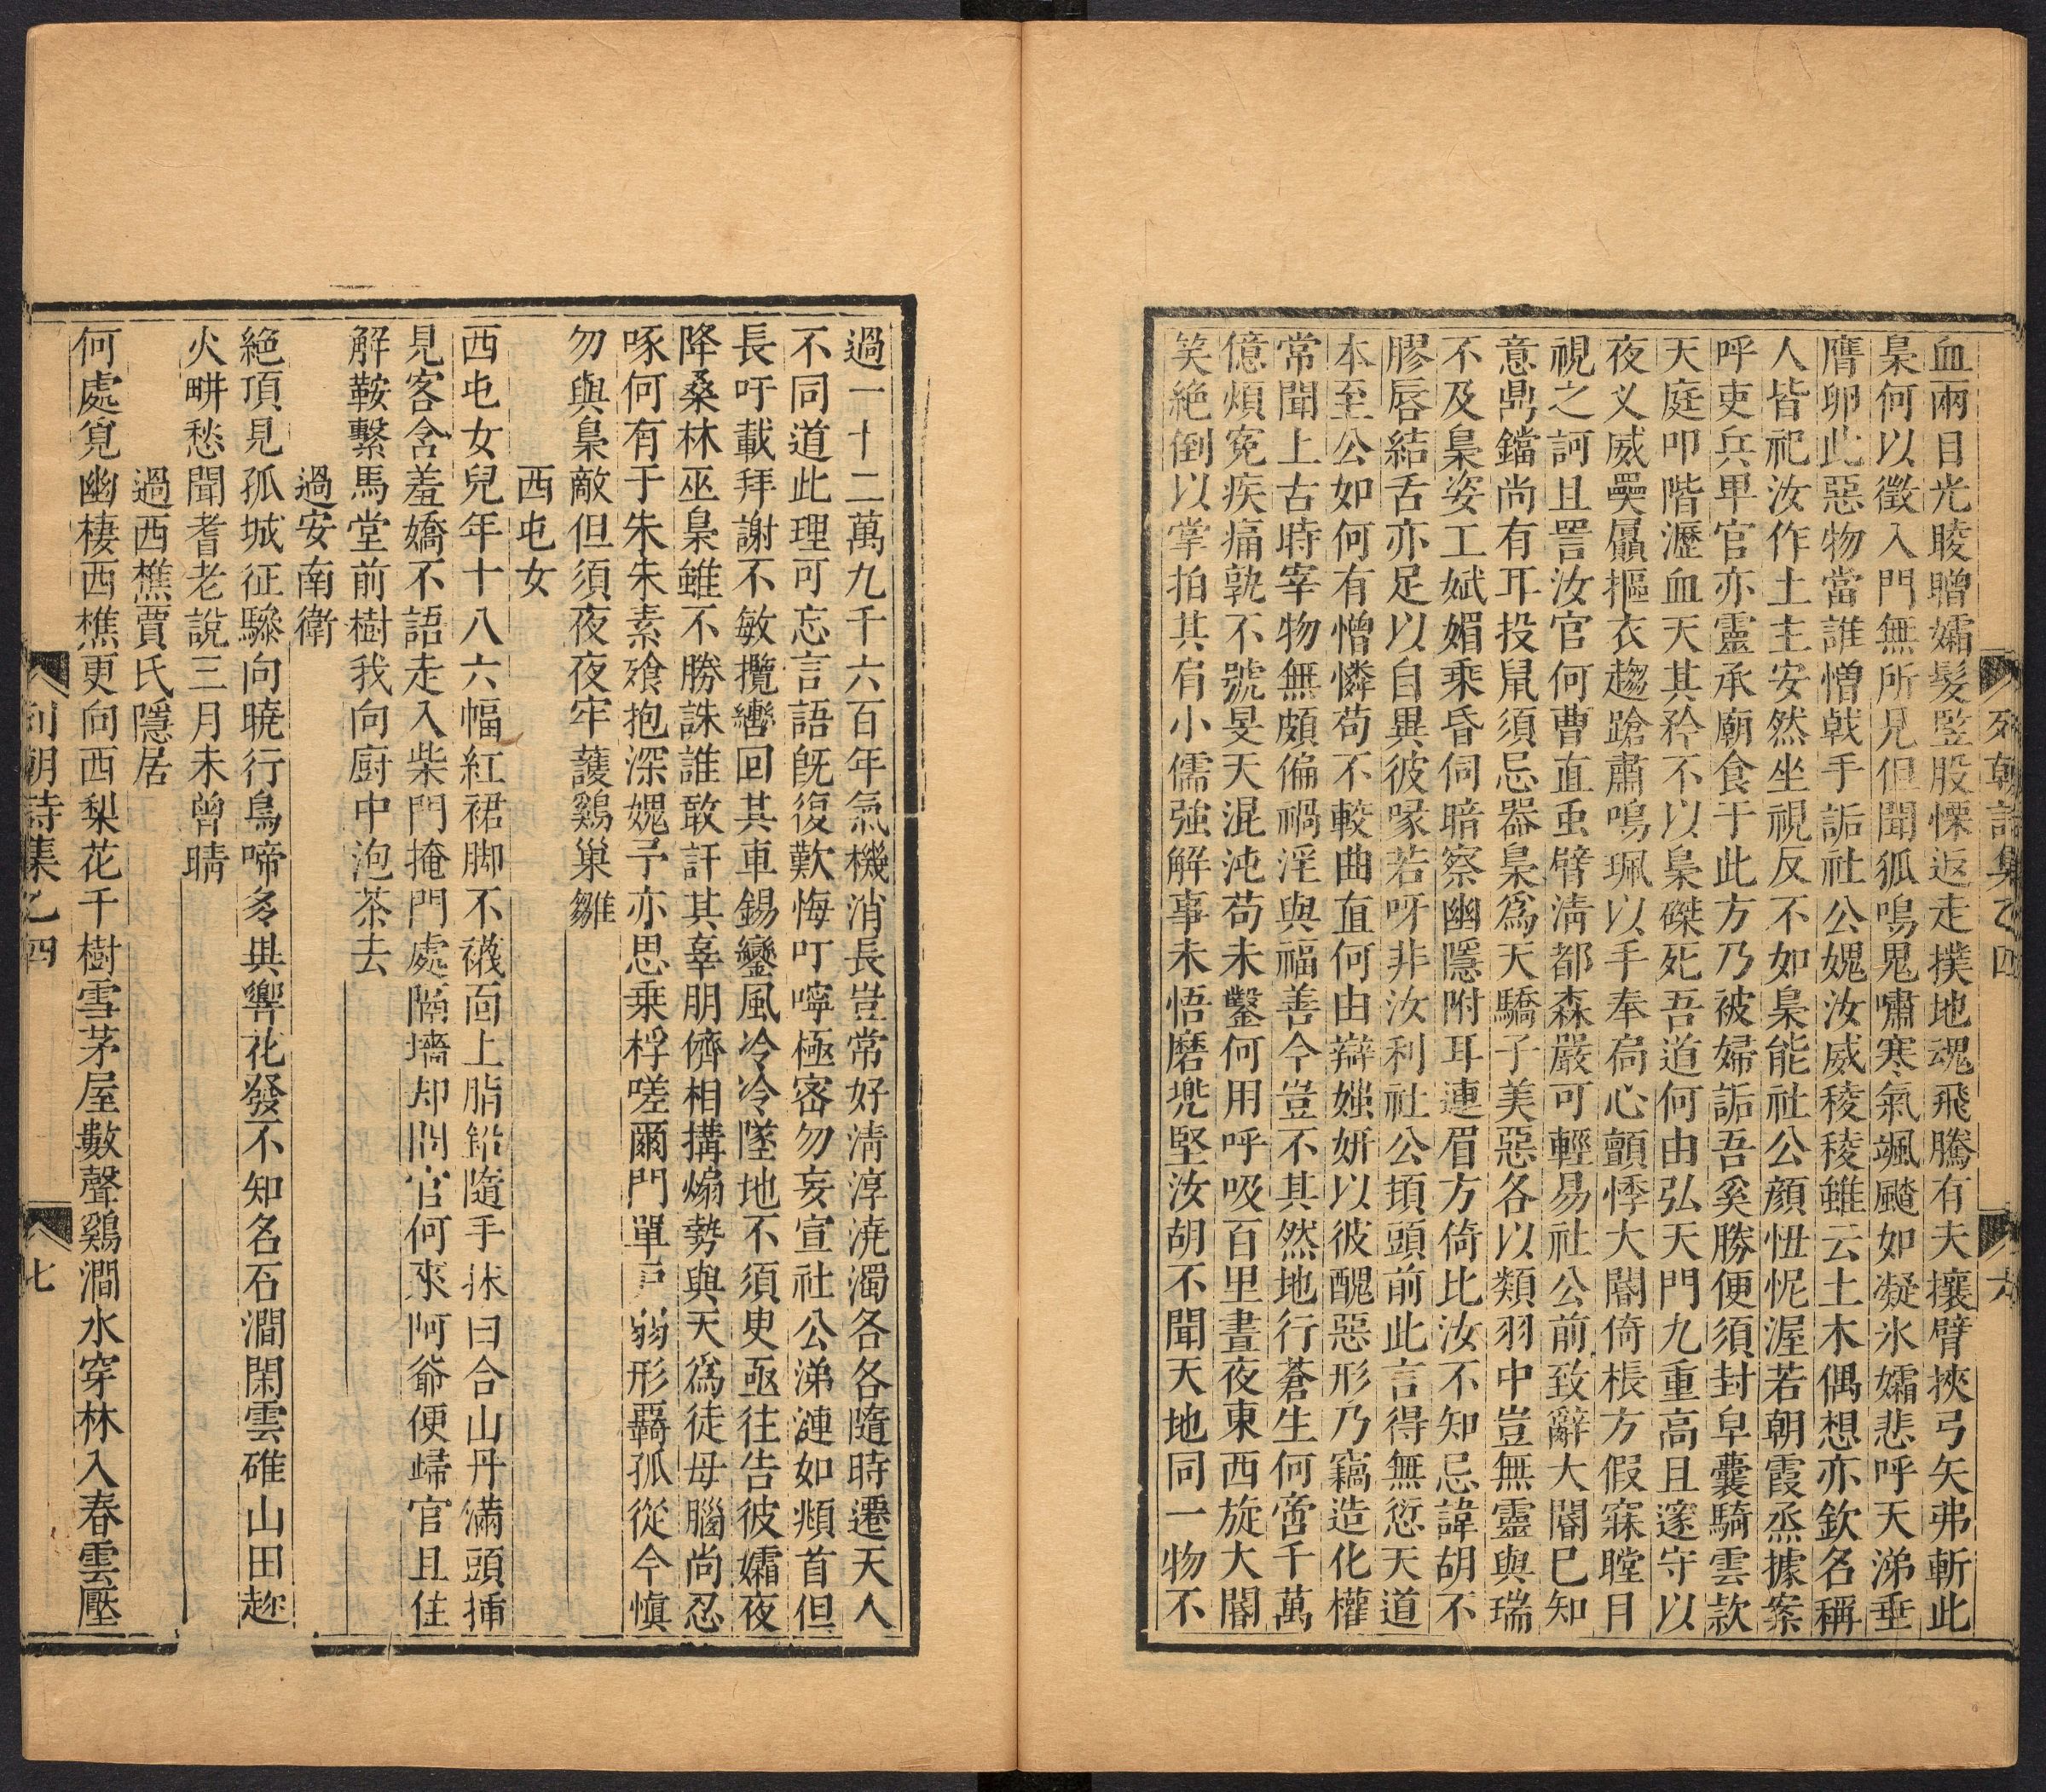 血兩目光睃贈孀髮竪股慄返走撲地魂飛騰有夫攘臂挾弓矢弗斬此
梟何以徵入門無所見但聞狐鳴鬼嘯寒氣颯颼如凝氷孀悲呼天涕垂
膺卵此惡物當誰憎戟手詬社公媿汝威稜稜雖云土木偶想亦欽名稱
人皆祀汝作土主安然坐視反不如梟能社公顔忸怩渥若朝霞烝據案
呼吏兵卑官亦靈承廟食于此方乃被婦詬吾奚勝便須封皁囊騎雲款
天庭叩階瀝血天其矜不以梟磔死吾道何由弘天門九重高且邃守以
夜叉威奰屭摳衣趨蹌肅鳴珮以手奉扃心顫悸大閽倚棖方假寐瞠目
視之訶且詈汝官何曹直虫臂淸都森嚴可輕易社公前致辭大閽巳知
意鼎鐺尚有耳投鼠須忌器梟爲天驕子美惡各以類羽中豈無靈與瑞
不及梟姿工娬媚乗昏伺暗察幽隱附耳連眉方倚比汝不知忌諱胡不
膠唇結舌亦足以自異彼喙若呀非汝利社公頊頭前此言得無愆天道
本至公如何有憎憐苟不較曲直何由辯媸姸以彼醜惡形乃竊造化權
常聞上古時宰物無頗偏禍淫與福善今豈不其然地行蒼生何啻千萬
億煩寃疾痛孰不號旻天混沌苟未鑿何用呼吸百里晝夜東西旋大閽
笑絶倒以掌拍其肩小儒強解事未悟磨兠堅汝胡不聞天地同一物不
列朝詩集乙四
六
過一十二萬九千六百年氣機消長豈常好淸淳澆濁各各隨時遷天人
不同道此理可忘言語旣復歎悔叮嚀極宻勿妄宣社公涕漣如頫首但
長吁載拜謝不敏攬轡回其車錫鑾風冷冷墜地不須臾亟往告彼孀夜
降桑林巫梟雖不勝誅誰敢訐其辜朋儕相搆煽勢與天爲徒母腦尚忍
啄何有于朱朱素飱抱深媿予亦思乗桴嗟爾門單戸弱形覊孤從今愼
勿與梟敵但須夜夜牢護鷄巢雛
西屯女
西屯女兒年十八六幅紅裙脚不襪面上脂鉛隨手抹白合山丹滿頭揷
見客含羞嬌不語走入柴門掩門處隔墻却問官何來阿爺便歸官且住
解鞍繫馬堂前樹我向厨中泡茶去
過安南衛
絶頂見孤城征驂向曉行鳥啼冬與響花發不知名石澗閑雲碓山田趂
火畊愁聞耆老說三月未曾晴
過西樵賈氏隱居
何處覓幽棲西樵更向西梨花千樹雪茅屋數聲鷄澗水穿林入春雲壓
列朝詩集乙四
七